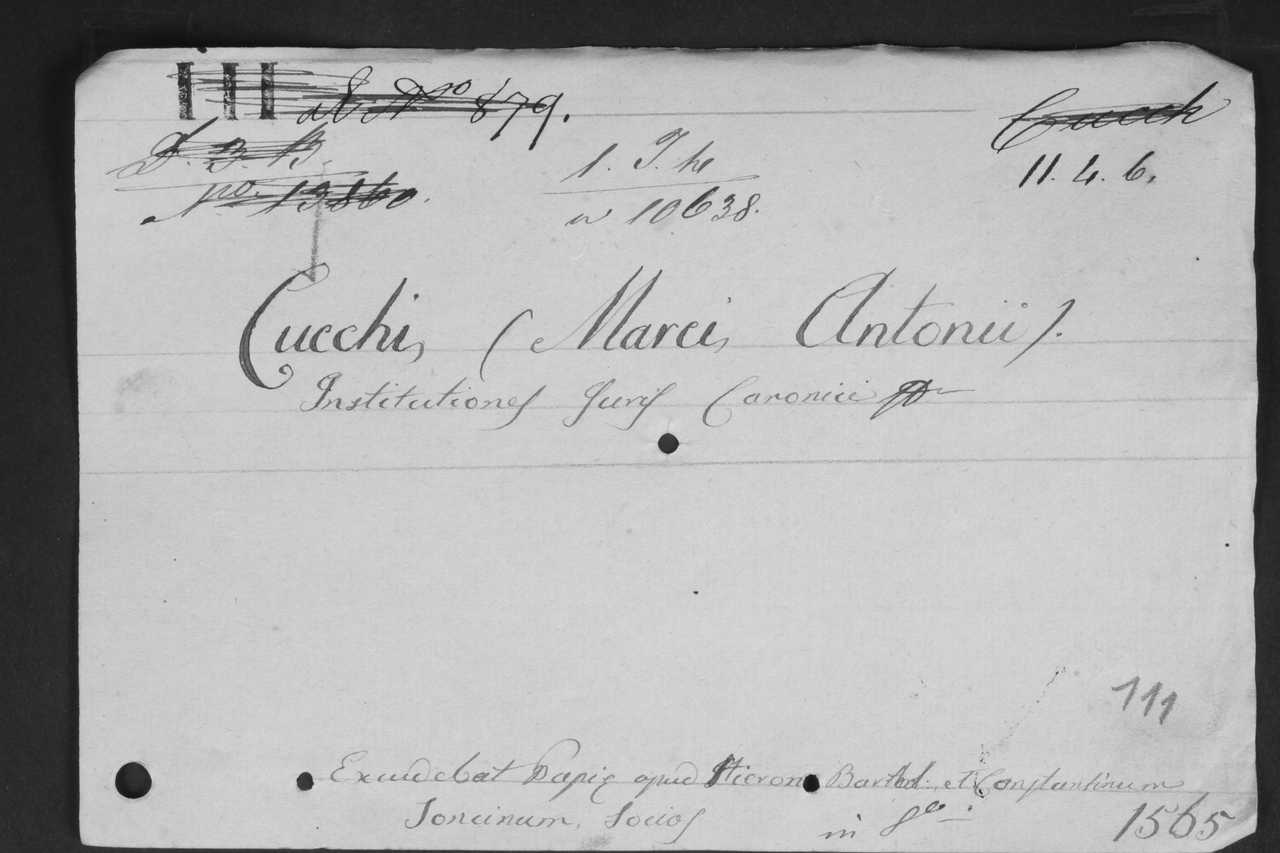 III de No 879.
Cucch
J. 3. B.
No. 13860.
1. J. h
n 10638.
11. 4. 6.
Cucchi, (Marci, Antonii).
Institutiones Juris Canonici
111
Excudebat Papię apud Hieron Barthol. et Constantinum
Joncinum, Socios
in 8o.
1565